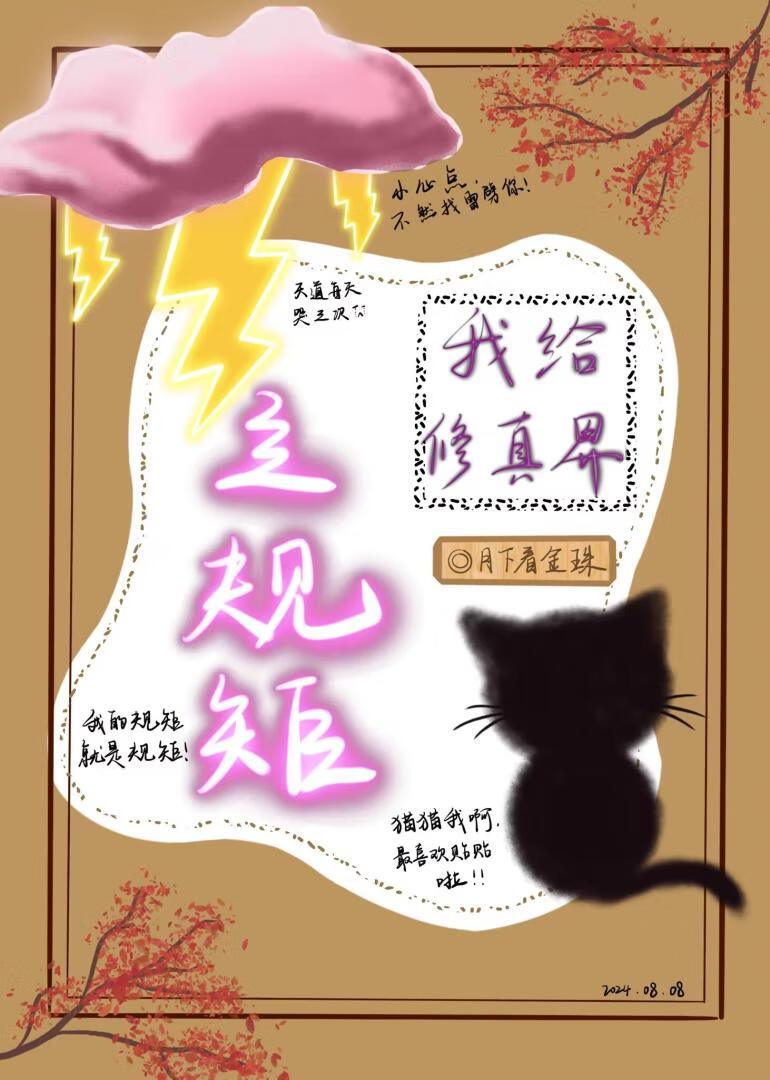 小心点，
不然找雷劈你！
天道每天
哭三次
我给
修真界
立规矩
◎月下看金珠
我的规矩
就是规矩！
猫猫我啊，
最喜欢贴贴
啦！！
2024.08.08